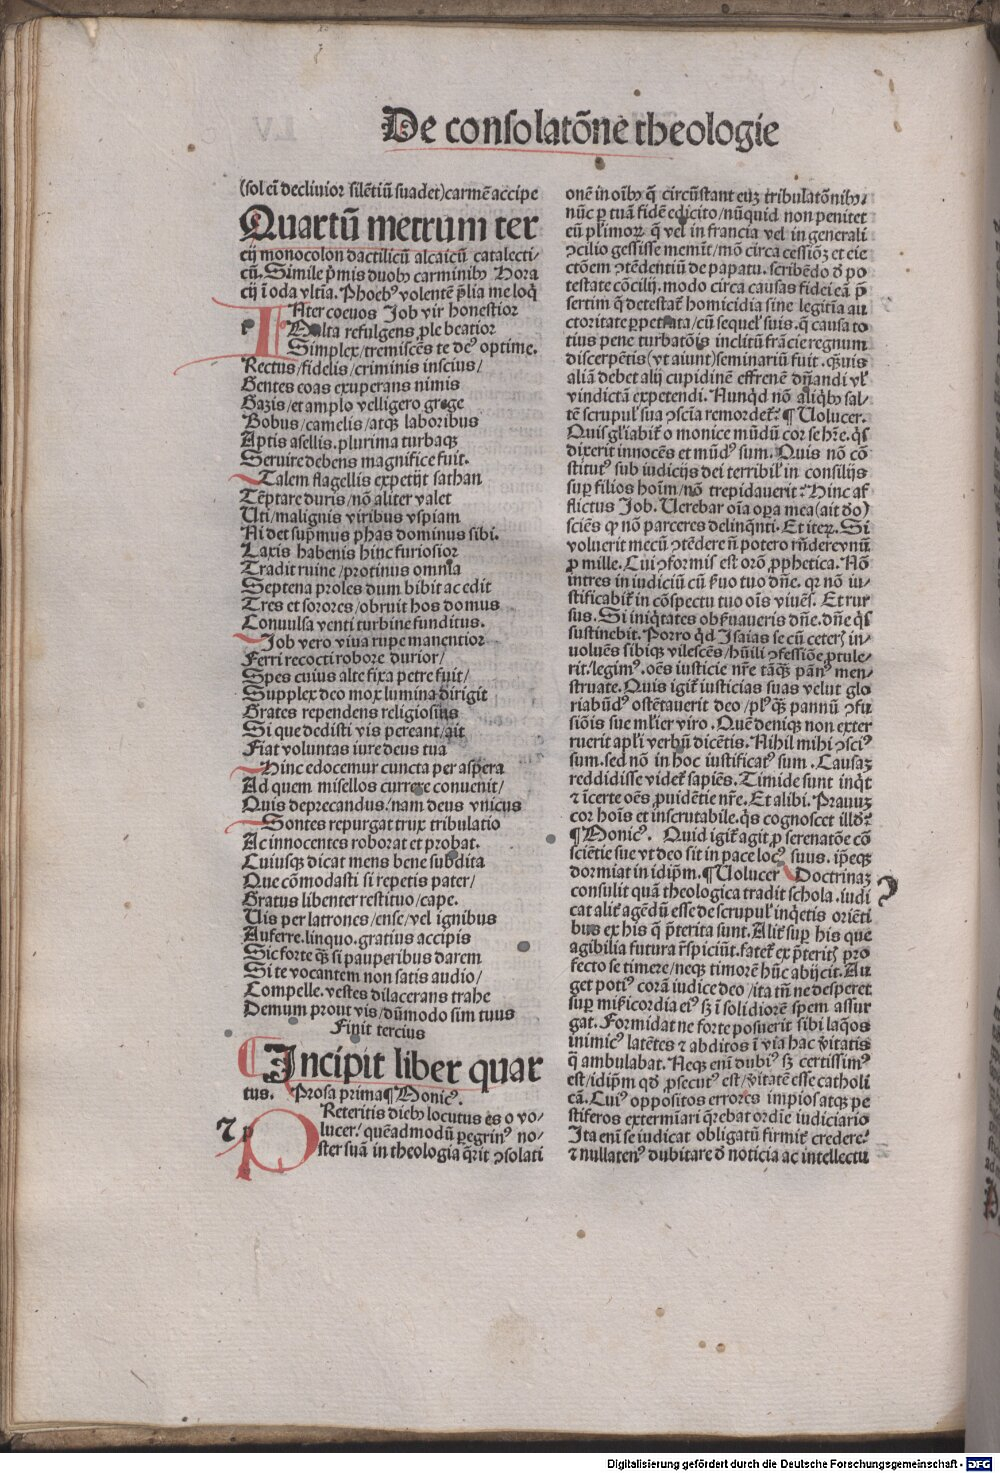 De consolatōne theologie
(sol ei decliuior silētiū suadet) carmē accipe
Quartū metrum ter
cij monocolon dactilicū alcaicū catalecti-
cū. Simile p̄mis duobꝰ carminibꝰ Hora
cij ī oda vltīa. Phoebꝰ volentē p̄lia me loq̄
INter coeuos Job vir honestior
Multa refulgens ꝓle beatior
Simplex/tremiscēs te deꝰ optime.
Rectus/fidelis/criminis inscius/
Gentes eoas exuperans nimis
Gazis/et amplo velligero grege
Bobus/camelis/atqꝫ laboribus
Aptis asellis. plurima turbaqꝫ
Seruire debens magnifice fuit.
Talem flagellis expetijt sathan
Tēptare duris/nō aliter valet
Uti/malignis viribus vspiam
Ni det supmus phas dominus sibi.
Laxis habenis hinc furiosior
Tradit ruine/protinus omnia
Septena proles dum bibit ac edit
Tres et sorores/obruit hos domus
Conuulsa venti turbine funditus.
Job vero viua rupe manentior
Ferri recocti robore durior/
Spes cuius alte fixa petre fuit/
Supplex deo mox lumina dirigit
Grates rependens religiosius
Si que dedisti vis pereant/ait
Fiat voluntas iure deus tua
Hinc edocemur cuncta per aspera
Ad quem misellos currere conuenit/
Quis deprecandus/nam deus vnicus
Sontes repurgat trux tribulatio
Ac innocentes roborat et probat.
Cuiusqꝫ dicat mens bene subdita
Que cōmodasti si repetis pater/
Gratus libenter restituo/cape.
Uis per latrones/ense/vel ignibus
Auferre. linquo. gratius accipis
Sic forte qꝫ si pauperibus darem
Si te vocantem non satis audio/
Compelle. vestes dilacerans trahe
Demum prout vis/dūmodo sim tuus
Finit tercius
Incipit liber quar
tus. Prosa prima ¶ Monicꝰ.
PReteritis diebꝰ locutus es o vo-
lucer/ quēadmodū ꝑegrinꝰ no-
ster suā in theologia q̄rit ꝯsolati
onē in oībꝰ q̄ circūstant eūꝫ tribulatōnibꝰ.
nūc ꝑ tuā fidē edicito/nūquid non penitet
eū plimorꝝ q̄ vel in francia vel in generali
ꝯcilio gessisse memīt/mō circa cessiōꝫ et eie
ctōem ꝯtēdentiū de papatu. scribēdo ð po
testate cōcilij. modo circa causas fidei eā p̄
sertim q̄ detestat̄ homicidia sine legitīa au
ctoritate ꝑpetrata/cū sequel' suis. q̄ causa to
tius pene turbatōis inclitū frācie regnum
discerpētis (vt aiunt) seminariū fuit. q̄uis
aliā debet alij cupidinē effrenē dn̄andi vl'
vindictā expetendi. Nunqd̄ nō aliqbꝰ sal-
tē scrupul' sua ꝯscīa remordet̄: ¶ Uolucer.
Quis gl'iabit̄ o monice mūdū cor se hr̄e. q̄s
dixerit innocēs et mūdꝰ sum. Quis nō cō
stitutꝰ sub iudicijs dei terribil' in consilijs
suꝑ filios hoīm/nō trepidauerit: Hinc af
flictus Job. Uerebar oīa oꝑa mea (ait ðo)
sciēs qꝫ nō parceres delinq̄nti. Et iteꝝ. Si
voluerit mecū ꝯtēdere n̄ potero rn̄dere vnū
ꝓ mille. Cui ꝯformis est orō ꝓphetica. Nō
intres in iudiciū cū ẜuo tuo dn̄e. qꝛ nō iu-
stificabit̄ in cōspectu tuo oīs viuēs. Et rur
sus. Si iniq̄tates obẜuaueris dn̄e. dn̄e q̄s
sustinebit. Porro qd̄ Isaias se cū ceterꝭ in-
voluēs sibiqꝫ vilescēs/hūili ꝯfessiōe ꝓtule-
rit/legimꝰ. oēs iusticie nr̄e tāqꝫ pānꝰ men-
struate. Quis igit̄ iusticias suas velut glo
riabūdꝰ ostētauerit deo/plꝰqꝫ pannū ꝯfu
siōis sue ml'ier viro. Quē deniqꝫ non exter
ruerit apl'i verbū dicētis. Nihil mihi ꝯsciꝰ
sum. sed nō in hoc iustificatꝰ sum. Causaꝫ
reddidisse videt̄ sapiēs. Timide sunt inq̄t
⁊ īcerte oēs ꝓuidētie nr̄e. Et alibi. Prauuꝫ
cor hoīs et inscrutabile. q̄s cognoscet illð:
¶ Monicꝰ. Quid igit̄ agit ꝓ serenatōe cō
sciētie sue vt deo sit in pace locꝰ suus. ip̄eqꝫ
dormiat in idip̄m. ¶ Uolucer Doctrinaꝫ
consulit quā theologica tradit schola. iudi
cat alit̄ agēdū esse de scrupul' inq̄etis oriēti
bus ex his q̄ p̄terita sunt. Alit̄ suꝑ his que
agibilia futura r̄spiciūt. fatet̄ ex p̄teritꝭ pro
fecto se timere/neqꝫ timorē hūc abijcit. Au
get potiꝰ corā iudice deo/ita tn̄ ne desperet
suꝑ mīs̄icordia eiꝰ sꝫ ī solidiorē spem assur
gat. Formidat ne forte posuerit sibi laq̄os
inimicꝰ latētes ⁊ abditos ī via hac v̄itatis
q̄ ambulabat. Neqꝫ enī dubiꝰ sꝫ certissimꝰ
est/idip̄m qð ꝓsecutꝰ est/v̄itatē esse catholi
cā. Cuiꝰ oppositos errores impiosatqꝫ pe
stiferos extermīari q̄rebat ordīe iudiciario
Ita enī se iudicat obligatū firmit̄ credere:
⁊ nullatenꝰ dubitare ð noticia ac intellectu
Digitalisierung gefördert durch die Deutsche Forschungsgemeinschaft - DFG